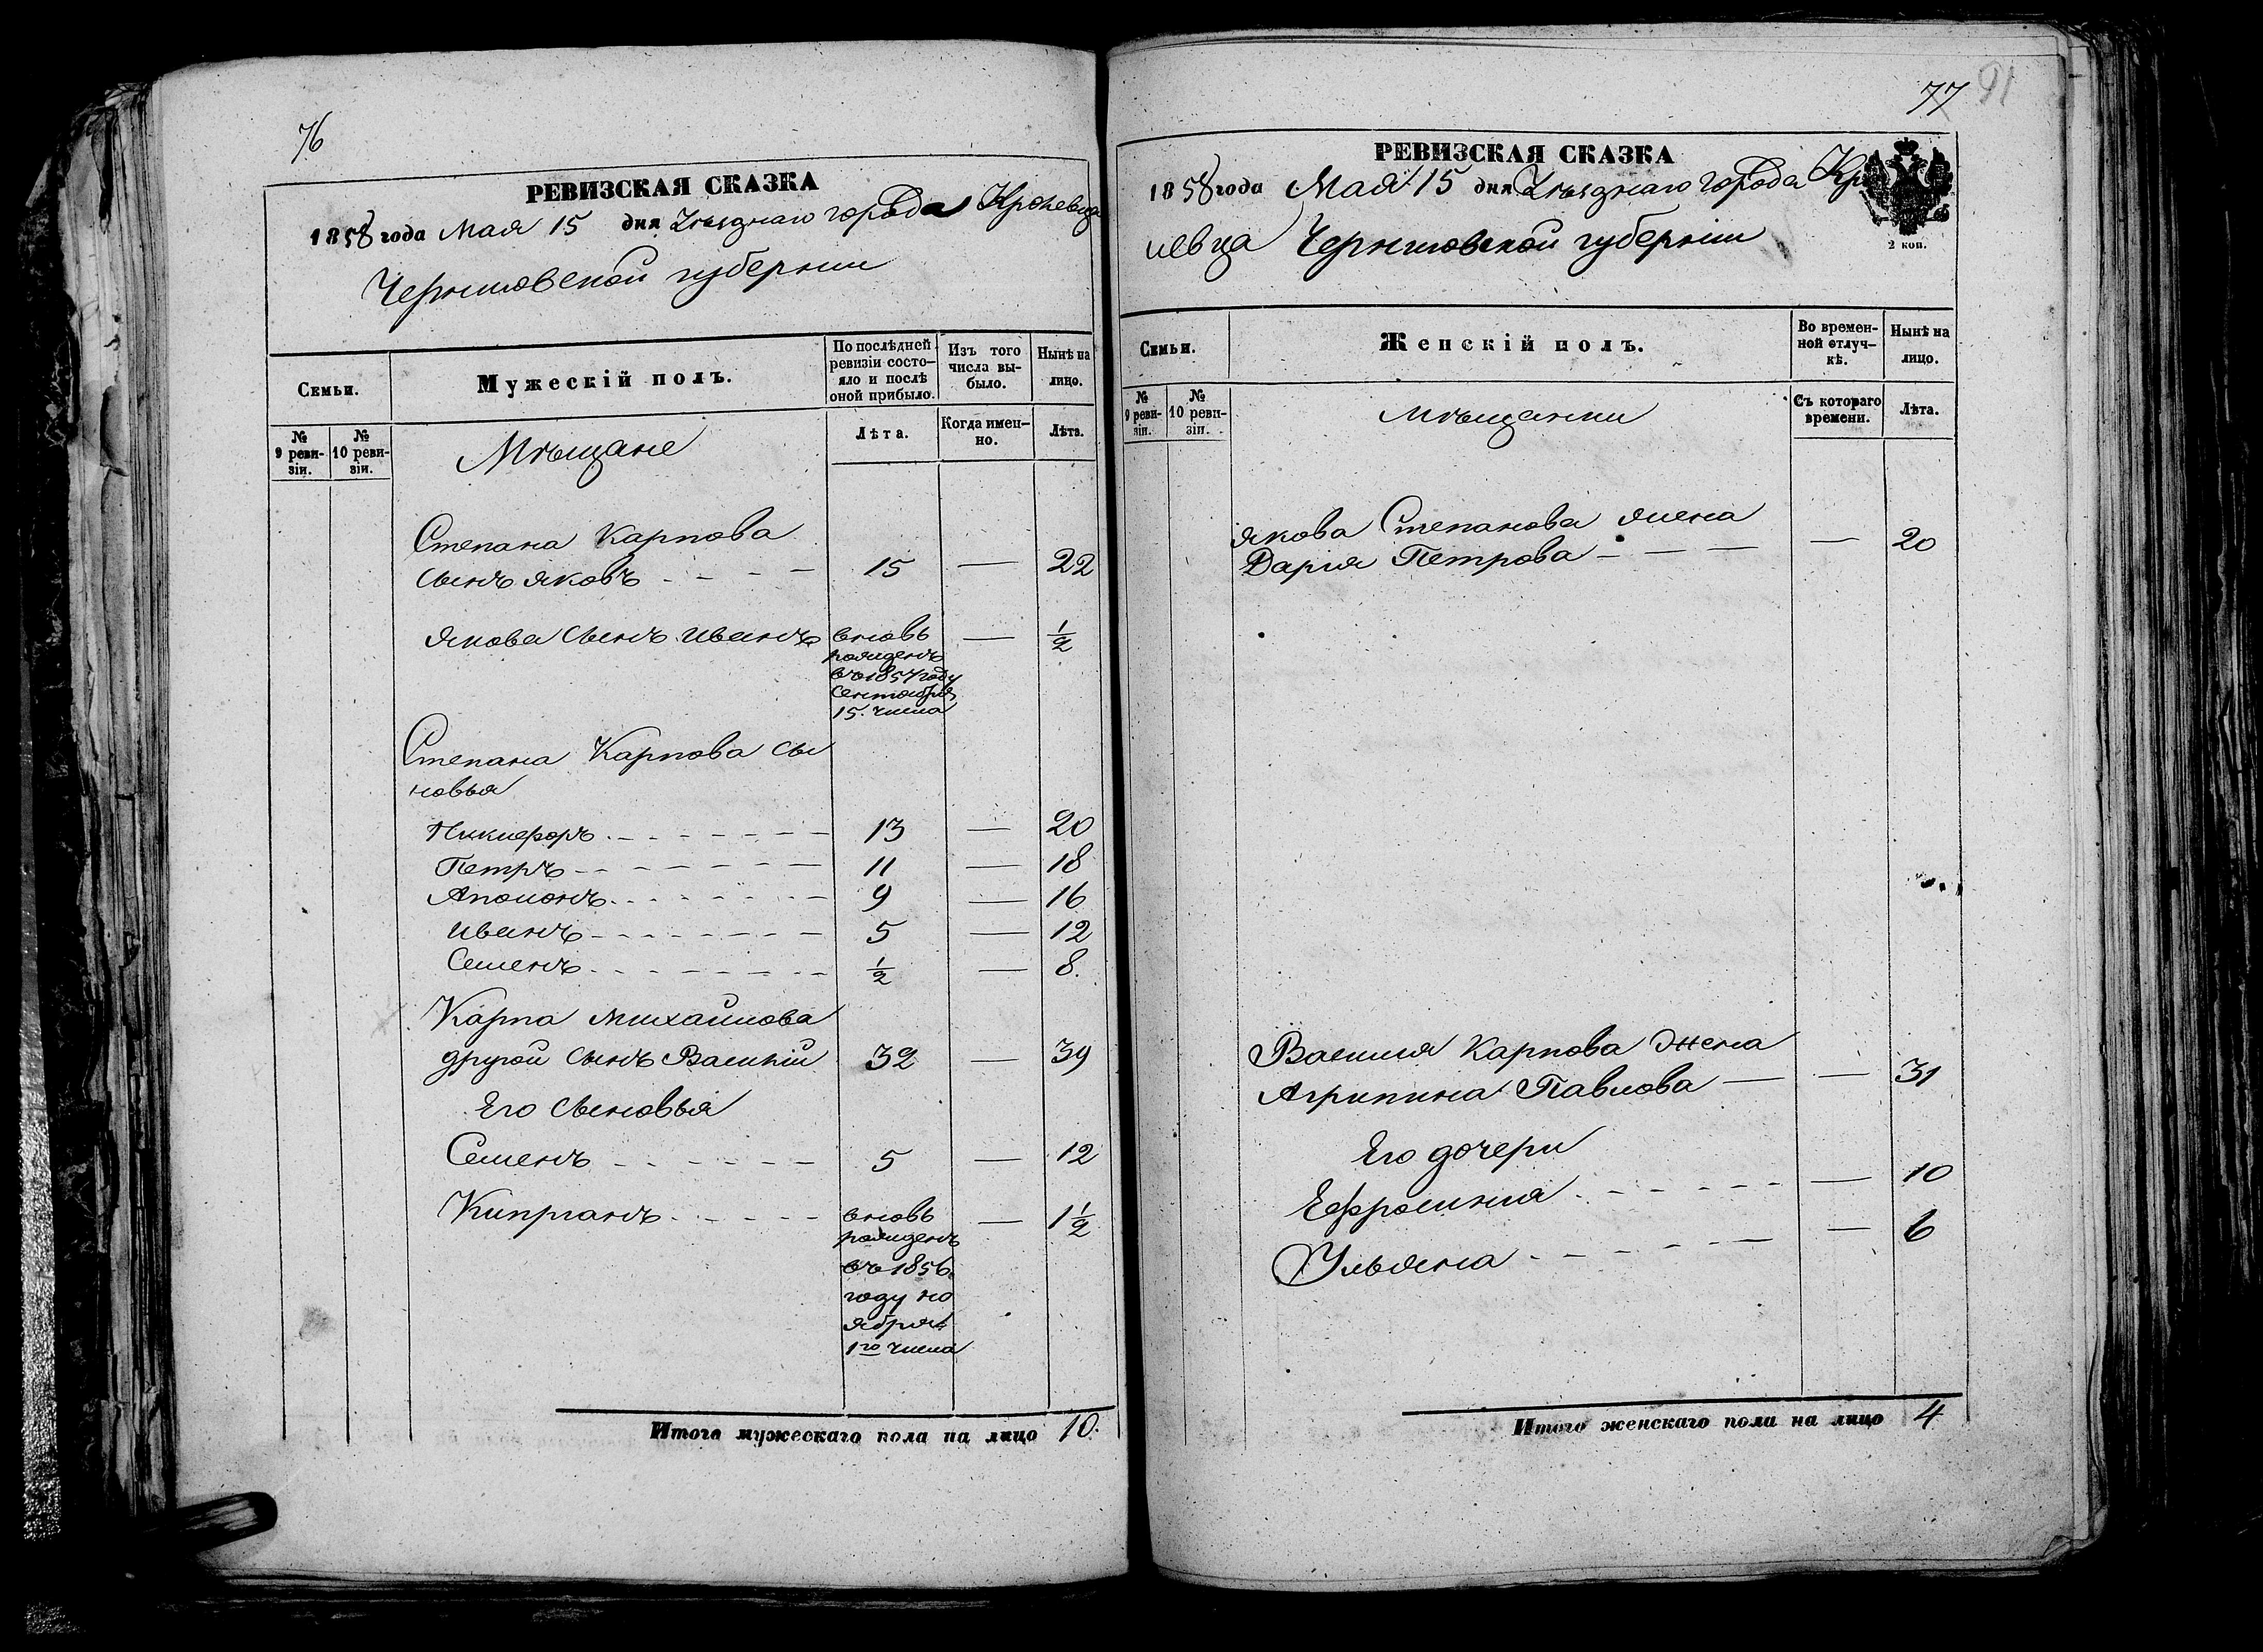 76
РЕВИЗСКАЯ СКАЗКА
1858 года Мая 15 дня Уѣзднаго города Кролевца
Черниговской губерніи
Семьи.
Мужескій полъ.
По послѣдней ревизіи состояло и послѣ оной прибыло.
Изъ того числа выбыло.
Нынѣ на лицо.
№ 9 ревизіи.
№ 10 ревизіи.
Мѣщане
Лѣта.
Когда именно.
Лѣта.
Степана Карпова
сынъ Яковъ 15 — 22
Якова сынъ Иванъ вновь — 1/2
рожденъ
въ 1857 году
сентября
15. числа
Степана Карпова сы
новья
Никифоръ 13 — 20
Петръ 11 — 18
Аполонъ 9 — 16
Иванъ 5 — 12
Семенъ 1/2 — 8.
Карпа Михайлова
другой сынъ Василій 32 — 39
Его сыновья
Семенъ 5 — 12
Кипріанъ вновь — 1 1/2
рожденъ
въ 1856
году но
ября
1го числа
Итого мужескаго пола на лицо 10.
77
91
РЕВИЗСКАЯ СКАЗКА
1858 года Мая 15 дня Уѣзднаго города Кро
левца Черниговской губерніи
2 коп.
Семьи.
Женскій полъ.
Во временной отлучкѣ.
Нынѣ на лицо.
№ 9 ревизіи.
№ 10 ревизіи.
Мѣщанки
Съ котораго времени.
Лѣта.
Якова Степанова жена
Дарія Петрова — 20
Василія Карпова жена
Агрипина Павлова — 31
Его дочери
Ефросинія — 10
Ульяна — 6
Итого женскаго пола на лицо 4